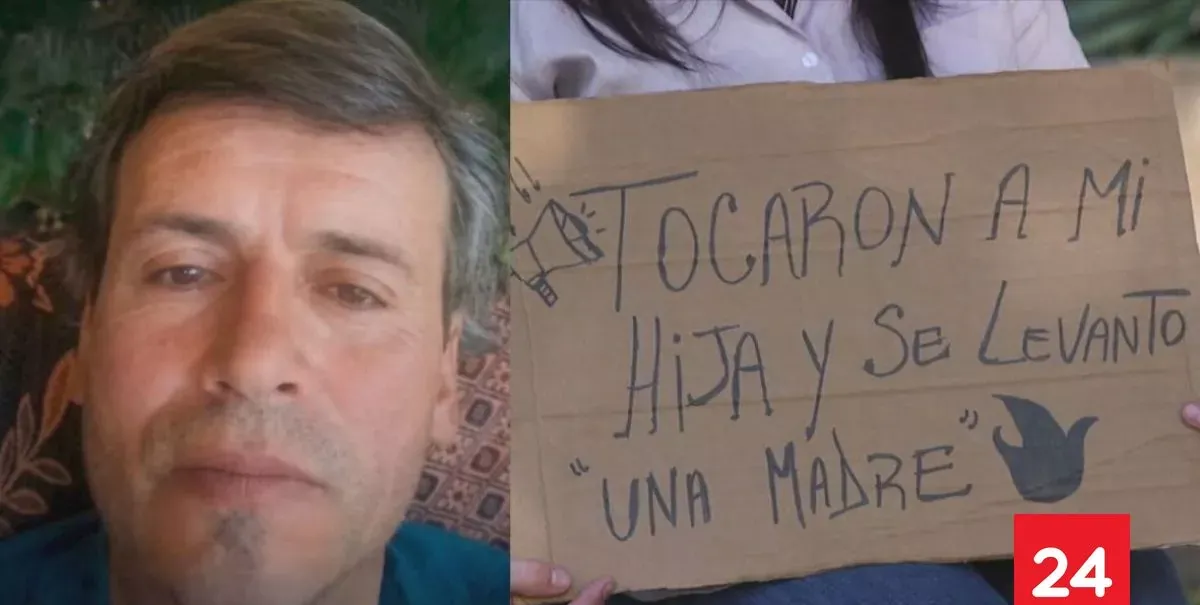 TOCARON A Mi
HiJA Y SE LEVANTO
"UNA MADRE"
24